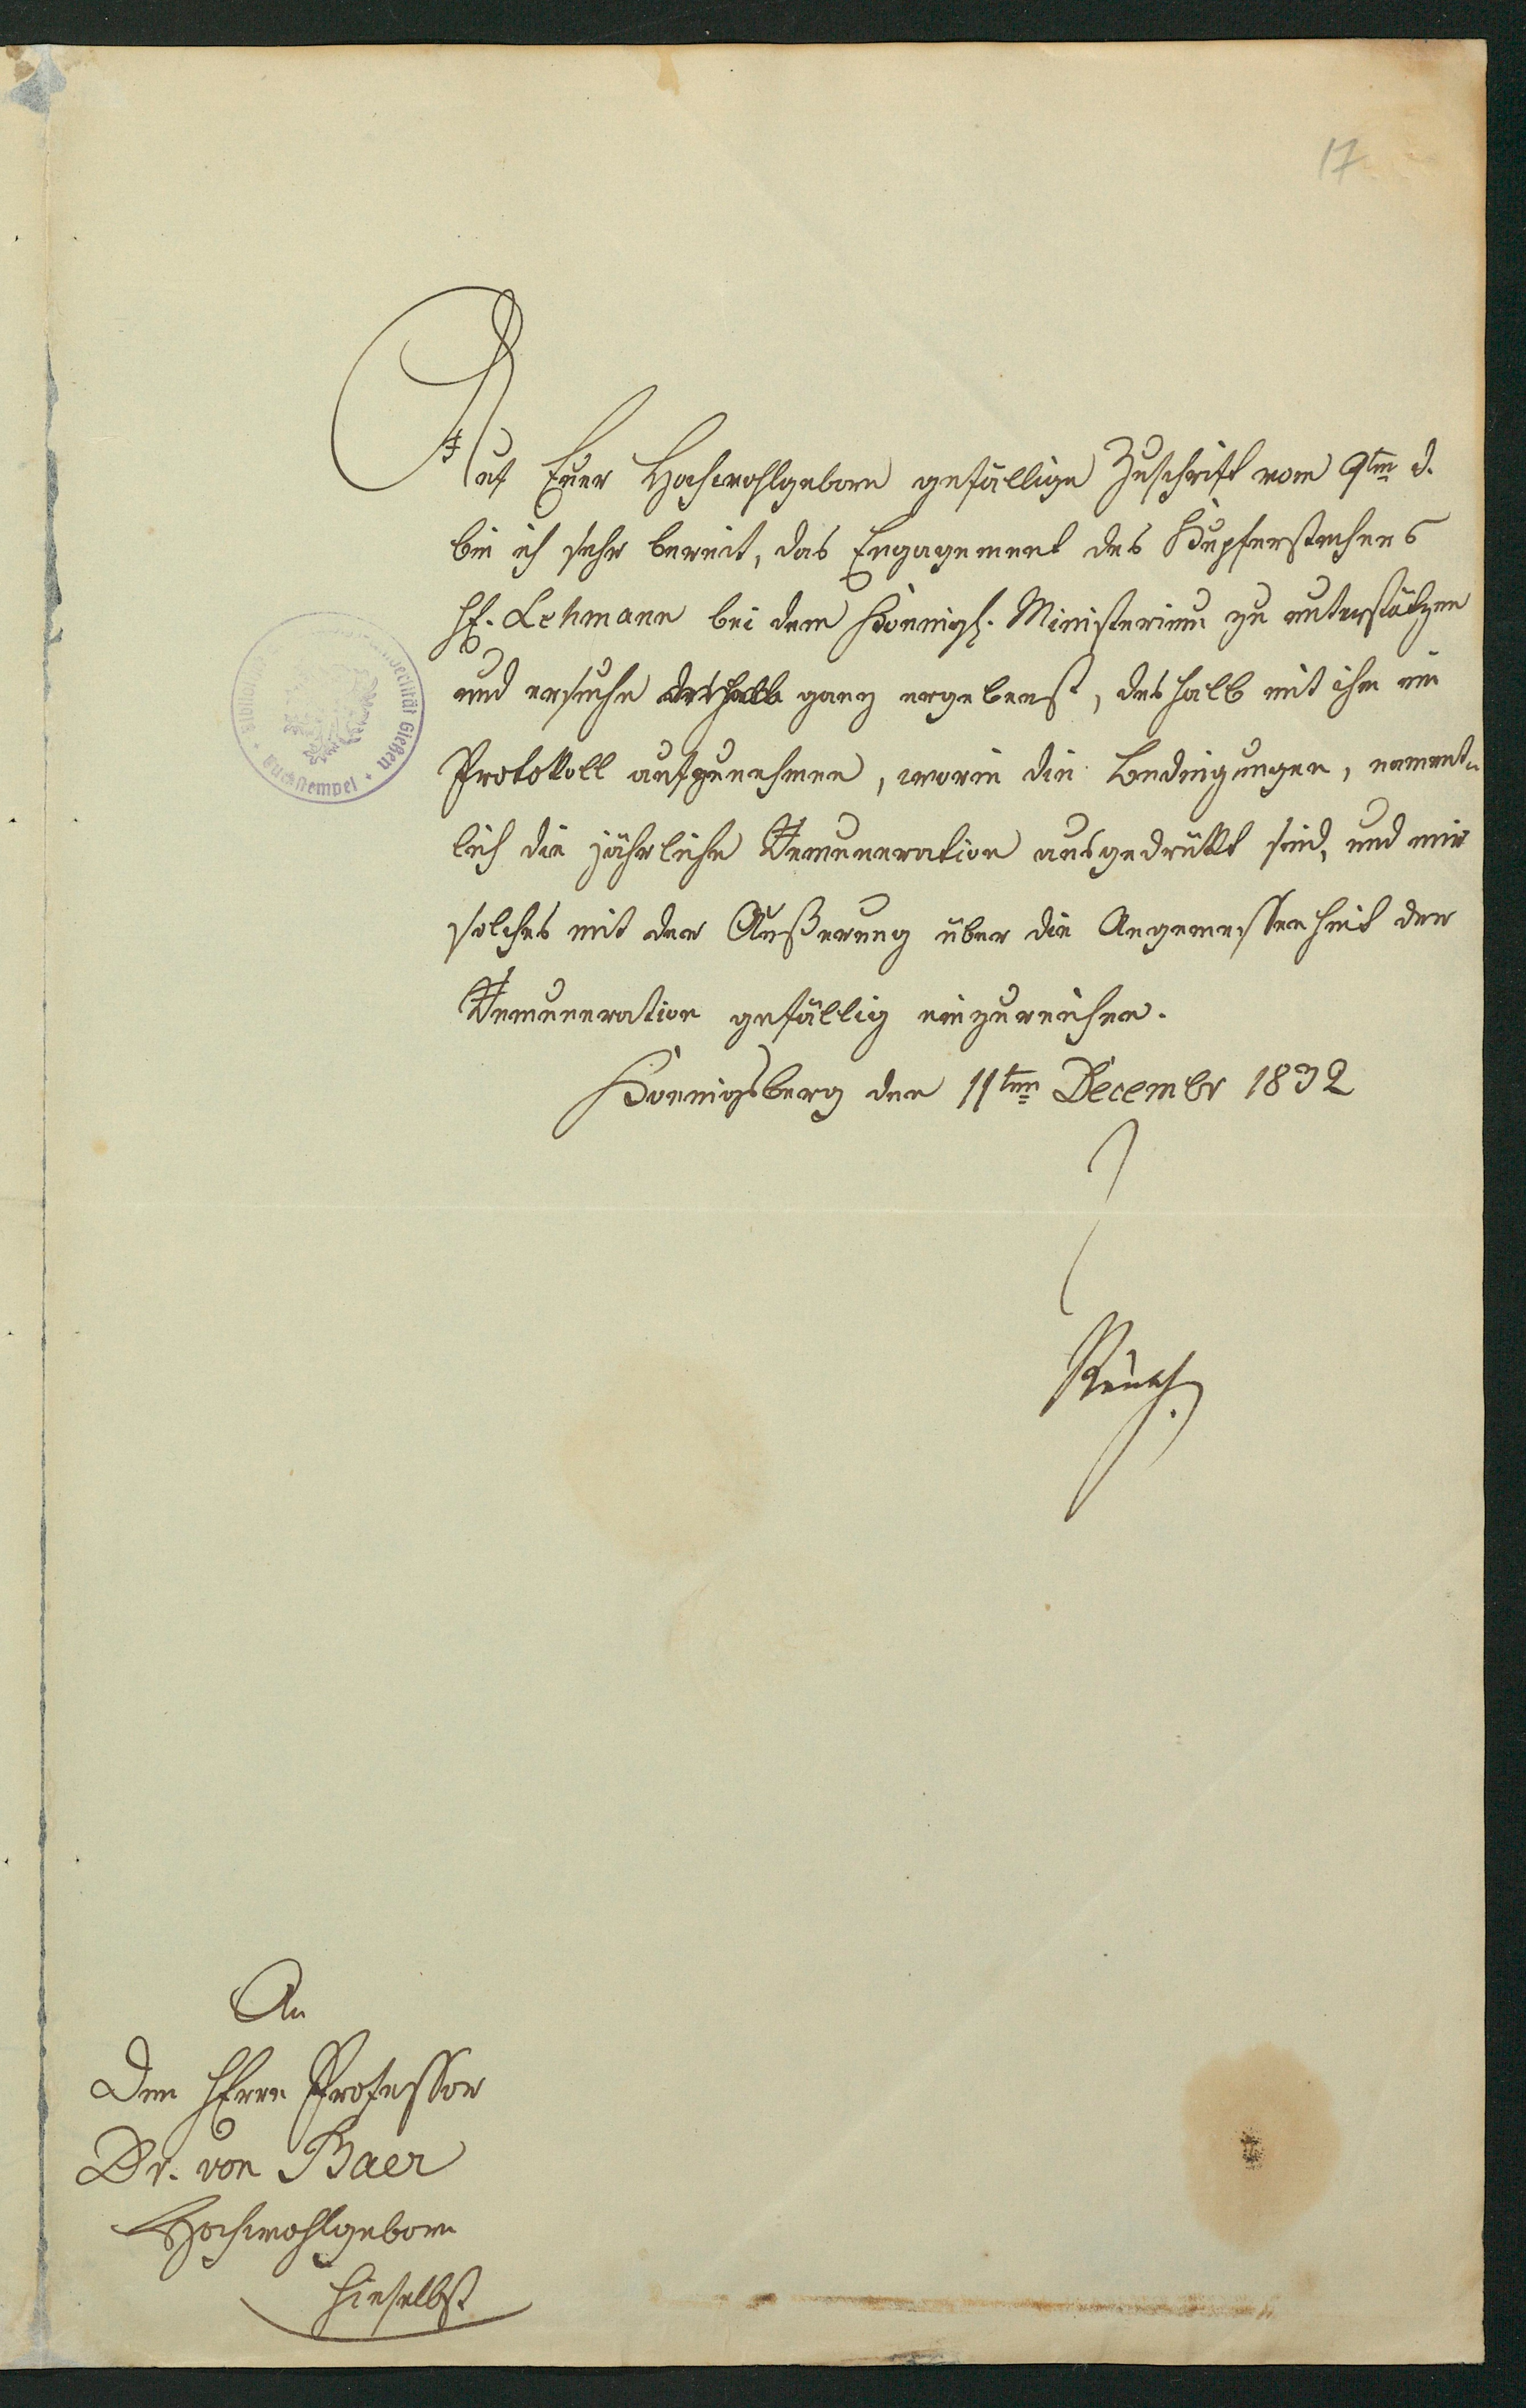 17
Auf Euer Hochwohlgeborn gefällige Zuschrift vom 9ten d.
bin ich sehr bereit, das Engagement des Kupferstechers
H. Lehmann bei dem Koenigl. Ministerium zu unterstützen
und ersuche deshalb ganz ergebenst, deshalb mit ihm ein
Protokoll aufzunehmen, worin die Bedingungen, nament-
lich die jährliche Remuneration ausgedrükt sind, und mir
solches mit der Äußerung über die Angemessenheit der
Remuneration gefällig einzureichen.
Koenigsberg den 11ten December 1832
Reusch.
Universität Gießen
Buchstempel
An
Den Herrn Professor
Dr. von Baer
Hochwohlgeborn
hieselbst